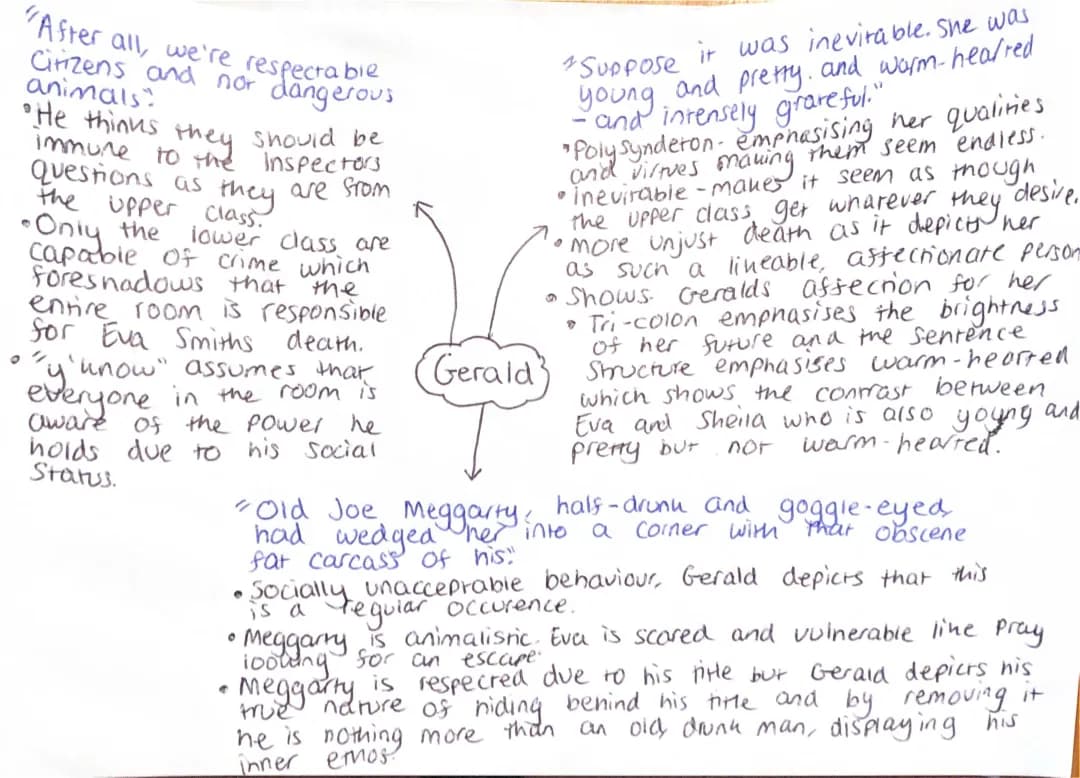 "After all, we're respectable
citizens and not dangerous
animals".
• He thinks they should be
immune to the Inspectors
questions as they are from
the upper class.
• Only the lower class are
capable of crime which
foreshadows that the
entire room is responsible
for Eva Smiths death.
• "y'know" assumes that
everyone in the room is
aware of the power he
holds due to his social
status.
"Suppose it was inevitable. She was
young and pretty. and warm-hearted
- and intensely grateful."
• Polysyndeton - emphasising her qualities
and virtues making them seem endless.
• inevitable - makes it seem as though
the upper class get whatever they desire.
• more unjust death as it depicts her
as such a likeable, affectionate person
• Shows Geralds affection for her
• Tri-colon emphasises the brightness
of her future and the sentence
structure emphasises warm-hearted
which shows the contrast between
Eva and Sheila who is also young and
pretty but not warm-hearted.
Gerald
"Old Joe Meggarty, half-drunk and goggle-eyed,
had wedged her into a corner with that obscene
fat carcass of his."
• Socially unacceptable behaviour, Gerald depicts that this
is a regular occurence.
• Meggarty is animalistic. Eva is scared and vulnerable like pray
looking for an escape.
• Meggarty is respected due to his title but Gerald depicts his
true nature of hiding behind his title and by removing it
he is nothing more than an old, drunk man, displaying his
inner